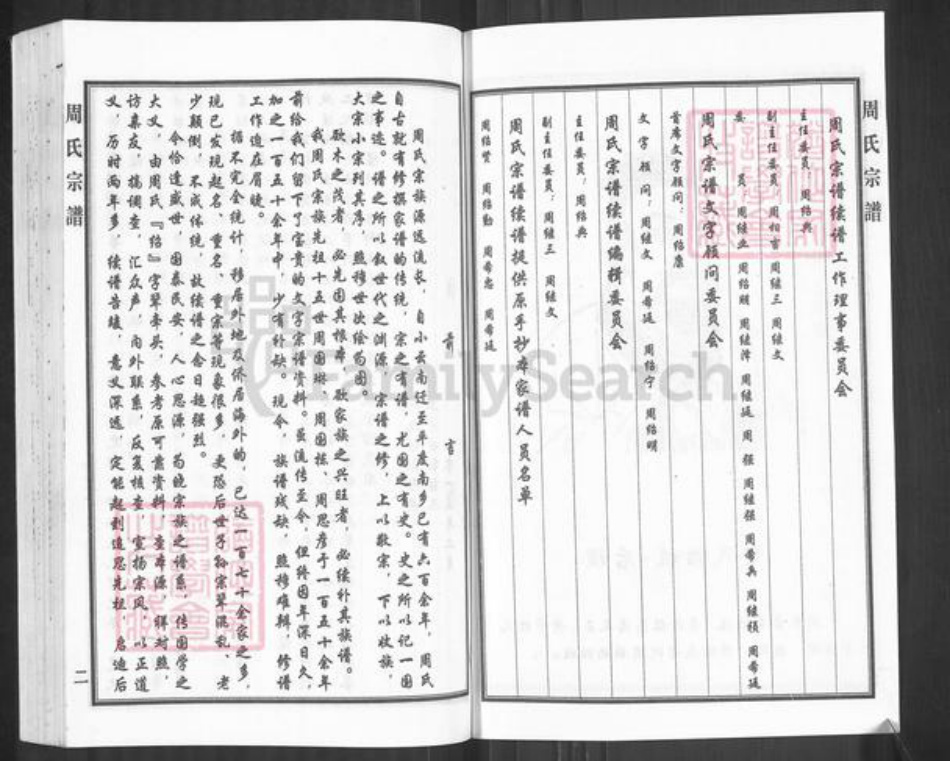 周氏宗譜
周氏宗谱续谱工作理事委员会
主任委员：周绍典
副主任委员：周相吉 周继三 周继文
委 员：周继业 周绍明 周继泽 周继廷 周强 周继强 周希兵 周继祯 周希廷
周氏宗谱文字顾问委员会
首席文字顾问：周绍康
文字顾问：周继文 周希廷 周绍宁 周绍明
周氏宗谱续谱编辑委员会
主任委员：周绍典
副主任委员：周继三 周继文
周氏宗谱续谱提供原手抄本家谱人员名单
周绍贤 周绍勤 周希忠 周希廷
前 言
周氏宗族源远流长，自小云南迁至平度南乡已有六百余年，周氏
自古就有修撰家谱的传统，宗之有谱，尤国之有史。史之所以记一国
之事迹。谱之所以叙世代之渊源，宗谱之修，上以敬宗，下以收族，
大宗小宗列其序，照穆世次绘为图。
欲木之茂者，必先固其根本，欲家族之兴旺者，必续补其族谱。
我周氏宗族先祖十五世周国琳、周国栋、周思彦于一百五十余年
前给我们留下了宝贵的文字宗谱资料。虽流传至今，但终因年深日久，
加之一百五十余年中，少有补缺。现今，族谱残缺，照穆难辩，修谱
工作迫在眉睫。
据不完全统计，移居外地及侨居海外的，已达一百七十余家之多，
现已发现起名、重名、重宗等现象很多，更恐后世子孙宗辈混乱、老
少颠倒，不成体统，故续谱之念日趋强烈。
今恰逢盛世，国泰民安，人心思源，为晓宗族之谱系，传国学之
大义，由周氏『绍』字辈牵头，参考原可靠资料，查本源，详对照，
访亲友，搞调查，汇众声，内外联系，反复核查，宣扬宗风，以正道
义，历时两年多，续谱告竣，意义深远，定能起到追思先祖，启迪后
周氏宗譜
二
FamilySearch